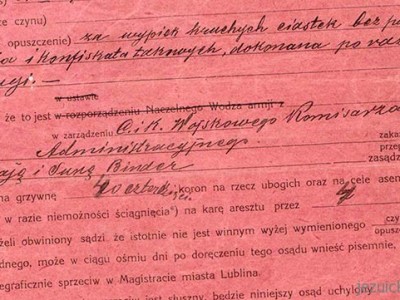 ie czynu)
opuszczenie) za wypiek kruchych ciastek bez p
a i konfiskata takowych, dokonana po raz
gi. —
w ustawie
że to jest w rozporządzeniu Naczelnego Wodza armji z
w zarządzeniu C. i K. Wojskowego Komisarza
Administracyjnego. zaka
przep
zasądz
ają i Surę Binder
na grzywnę 40 czterdzieści koron na rzecz ubogich oraz na cele asen
w razie niemożności ściągnięcia*) na karę aresztu przez 4
żeli obwiniony sądzi, że istotnie nie jest winnym wyżej wymienionego czy
opuszc
dnego, może w ciągu ośmiu dni po doręczeniu tego osądu wnieść pisemnie,
egraficznie sprzeciw w Magistracie miasta Lublina.
jest słuszny, będzie niniejszy osąd uchylony
jezuick